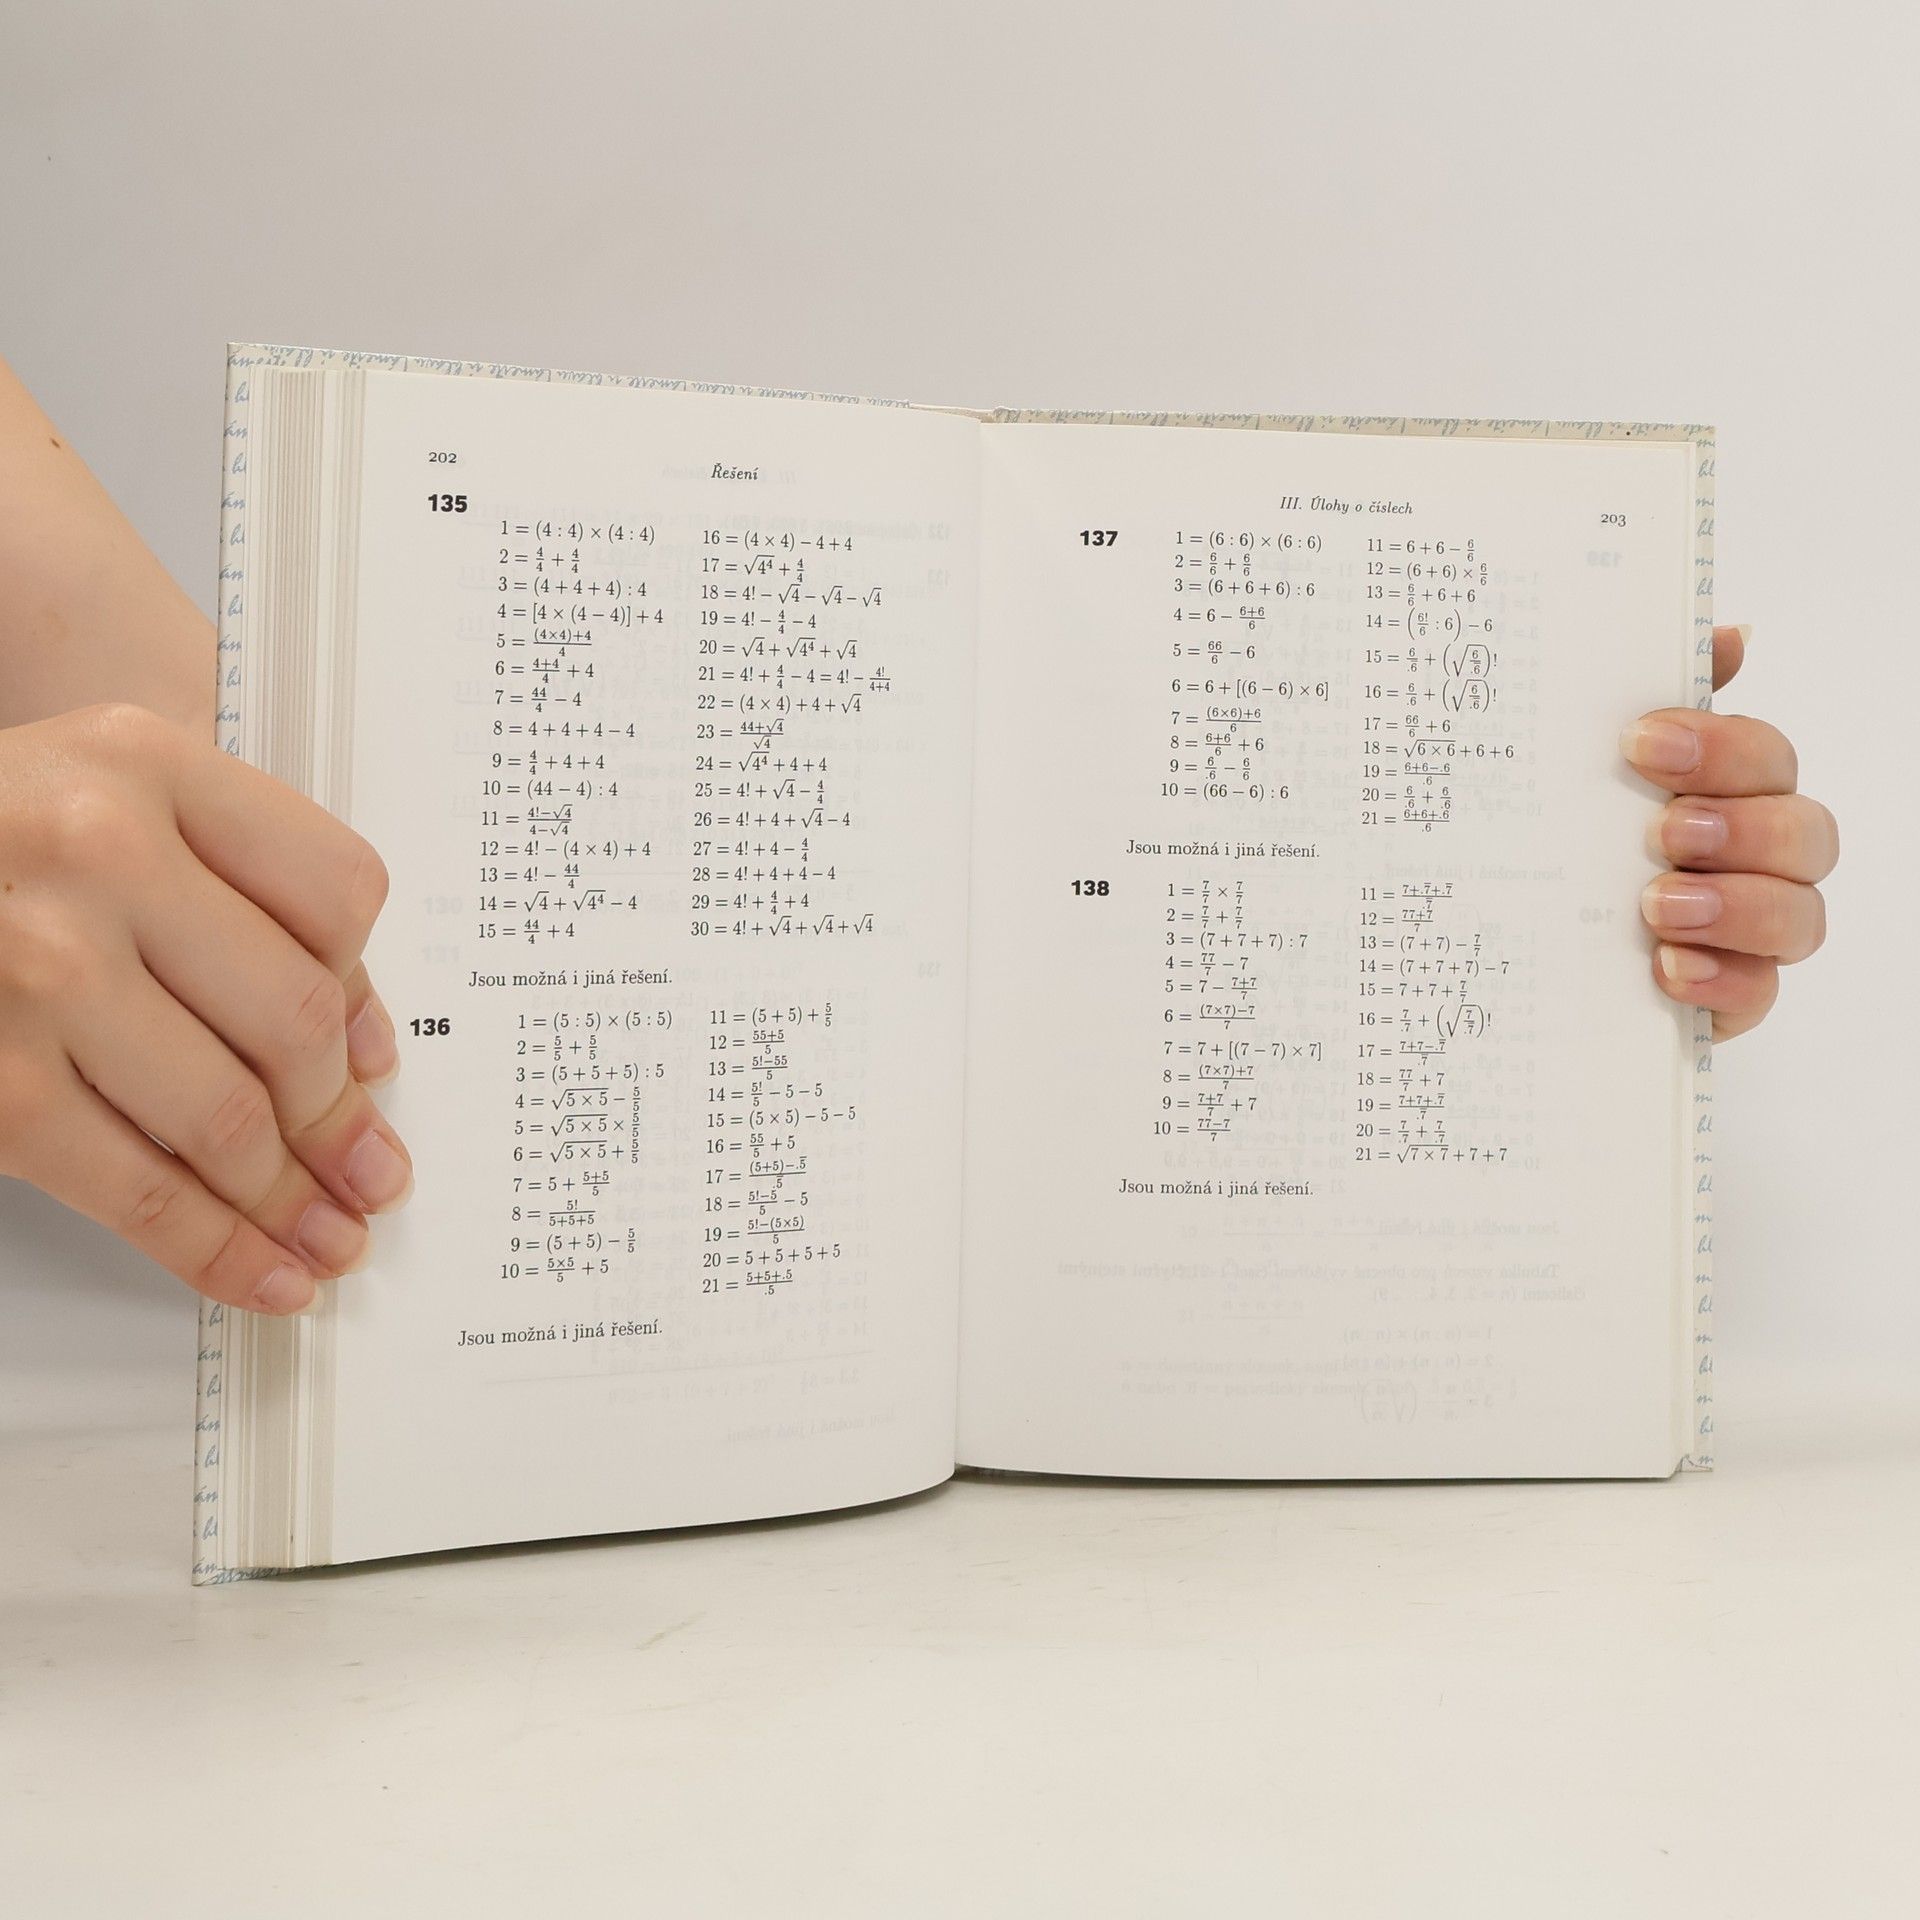 202
Řešení
135
1 = (4 : 4) × (4 : 4)
2 = 4/4 + 4/4
3 = (4 + 4 + 4) : 4
4 = [4 × (4 − 4)] + 4
5 = (4×4)+4/4
6 = 4+4/4 + 4
7 = 44/4 − 4
8 = 4 + 4 + 4 − 4
9 = 4/4 + 4 + 4
10 = (44 − 4) : 4
11 = 4!−√4/4−√4
12 = 4! − (4 × 4) + 4
13 = 4! − 44/4
14 = √4 + √4⁴ − 4
15 = 44/4 + 4
16 = (4 × 4) − 4 + 4
17 = √4⁴ + 4/4
18 = 4! − √4 − √4 − √4
19 = 4! − 4/4 − 4
20 = √4 + √4⁴ + √4
21 = 4! + 4/4 − 4 = 4! − 4!/4+4
22 = (4 × 4) + 4 + √4
23 = 44+√4/√4
24 = √4⁴ + 4 + 4
25 = 4! + √4 − 4/4
26 = 4! + 4 + √4 − 4
27 = 4! + 4 − 4/4
28 = 4! + 4 + 4 − 4
29 = 4! + 4/4 + 4
30 = 4! + √4 + √4 + √4
Jsou možná i jiná řešení.
136
1 = (5 : 5) × (5 : 5)
2 = 5/5 + 5/5
3 = (5 + 5 + 5) : 5
4 = √5 × 5 − 5/5
5 = √5 × 5 × 5/5
6 = √5 × 5 + 5/5
7 = 5 + 5+5/5
8 = 5!/5+5+5
9 = (5 + 5) − 5/5
10 = 5×5/5 + 5
11 = (5 + 5) + 5/5
12 = 55+5/5
13 = 5!−55/5
14 = 5!/5 − 5 − 5
15 = (5 × 5) − 5 − 5
16 = 55/5 + 5
17 = (5+5)−.5̅/.5̅
18 = 5!−5/5 − 5
19 = 5!−(5×5)/5
20 = 5 + 5 + 5 + 5
21 = 5+5+.5/.5
Jsou možná i jiná řešení.
III. Úlohy o číslech
203
137
1 = (6 : 6) × (6 : 6)
2 = 6/6 + 6/6
3 = (6 + 6 + 6) : 6
4 = 6 − 6+6/6
5 = 66/6 − 6
6 = 6 + [(6 − 6) × 6]
7 = (6×6)+6/6
8 = 6+6/6 + 6
9 = 6/.6 − 6/6
10 = (66 − 6) : 6
11 = 6 + 6 − 6/6
12 = (6 + 6) × 6/6
13 = 6/6 + 6 + 6
14 = (6!/6 : 6) − 6
15 = 6/.6̅ + (√6/.6̅)!
16 = 6/.6 + (√6/.6̅)!
17 = 66/6 + 6
18 = √6 × 6 + 6 + 6
19 = 6+6−.6/.6
20 = 6/.6 + 6/.6
21 = 6+6+.6/.6
Jsou možná i jiná řešení.
138
1 = 7/7 × 7/7
2 = 7/7 + 7/7
3 = (7 + 7 + 7) : 7
4 = 77/7 − 7
5 = 7 − 7+7/7
6 = (7×7)−7/7
7 = 7 + [(7 − 7) × 7]
8 = (7×7)+7/7
9 = 7+7/7 + 7
10 = 77−7/7
11 = 7+.7̅+.7̅/.7̅
12 = 77+7/7
13 = (7 + 7) − 7/7
14 = (7 + 7 + 7) − 7
15 = 7 + 7 + 7/7
16 = 7/.7 + (√7/.7̅)!
17 = 7+7−.7̅/.7̅
18 = 77/7 + 7
19 = 7+7+.7̅/.7̅
20 = 7/.7 + 7/.7
21 = √7 × 7 + 7 + 7
Jsou možná i jiná řešení.